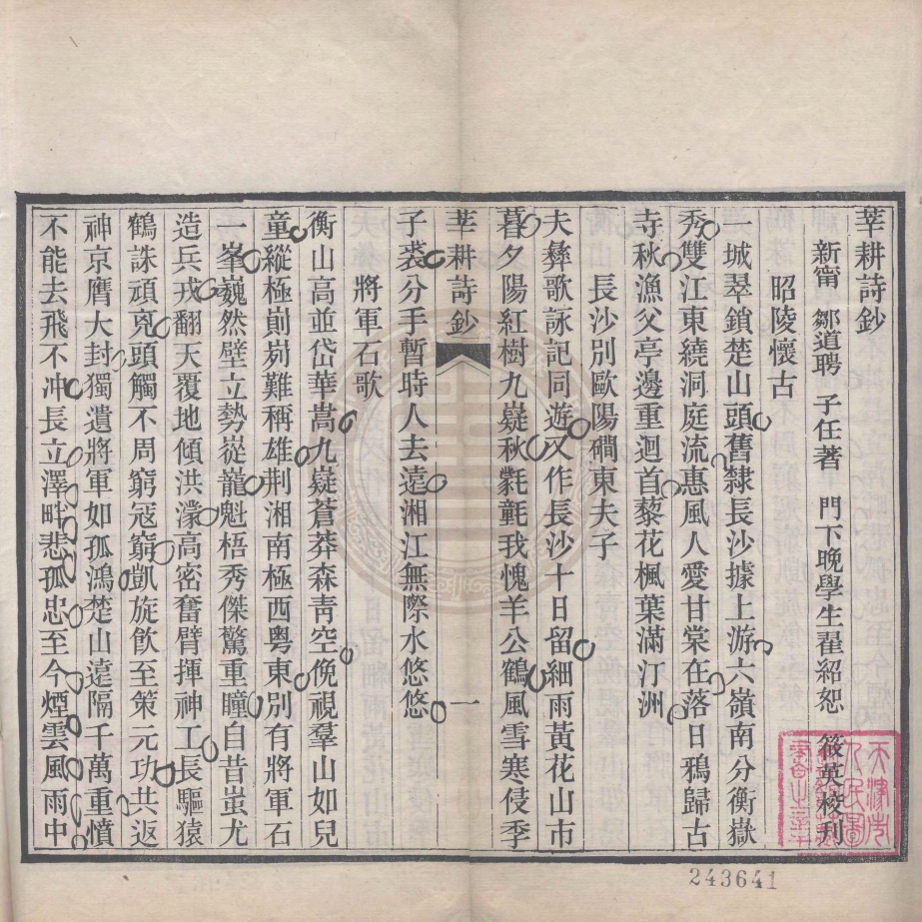 莘耕詩鈔
新甯 鄒道聘 子任著 門下晚學生翟紹恕 筱英校刋
昭陵懷古
一城翠鎖楚山頭舊隸長沙據上游六嶺南分衡嶽
秀雙江東繞洞庭流惠風人愛甘棠在落日鴉歸古
寺秋漁父亭邊重迴首藜花楓葉滿汀洲
長沙別歐陽磵東夫子
夫彝歌詠記同遊又作長沙十日留細雨黃花山市
暮夕陽紅樹九嶷秋氋氃我愧羊公鶴風雪寒侵季
莘耕詩鈔 一
子裘分手暫時人去遠湘江無際水悠悠
將軍石歌
衡山高並岱華嵩九嶷蒼莽森靑空俛視羣山如兒
童縱極崱屴難稱雄荆湘南極西粵東別有將軍石
一峯巍然壁立勢嵸龍魁梧秀傑驚重瞳自昔蚩尤
造兵戎翻天覆地傾洪濛高密奮臂揮神工長驅猿
鶴誅頑兇頭觸不周窮寇窮凱旋飮至策元功共返
神京膺大封獨遺將軍如孤鴻楚山遠隔千萬重憤
不能去飛不冲長立澤畔悲孤忠至今煙雲風雨中
天津市人民圖書館
243641